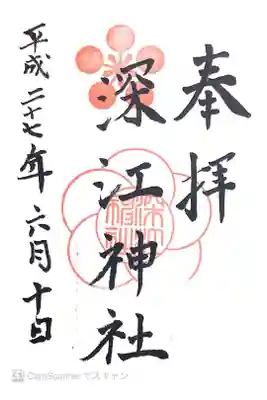 奉拝
深江神社
平成二十七年六月十日
CamScannerでスキャン